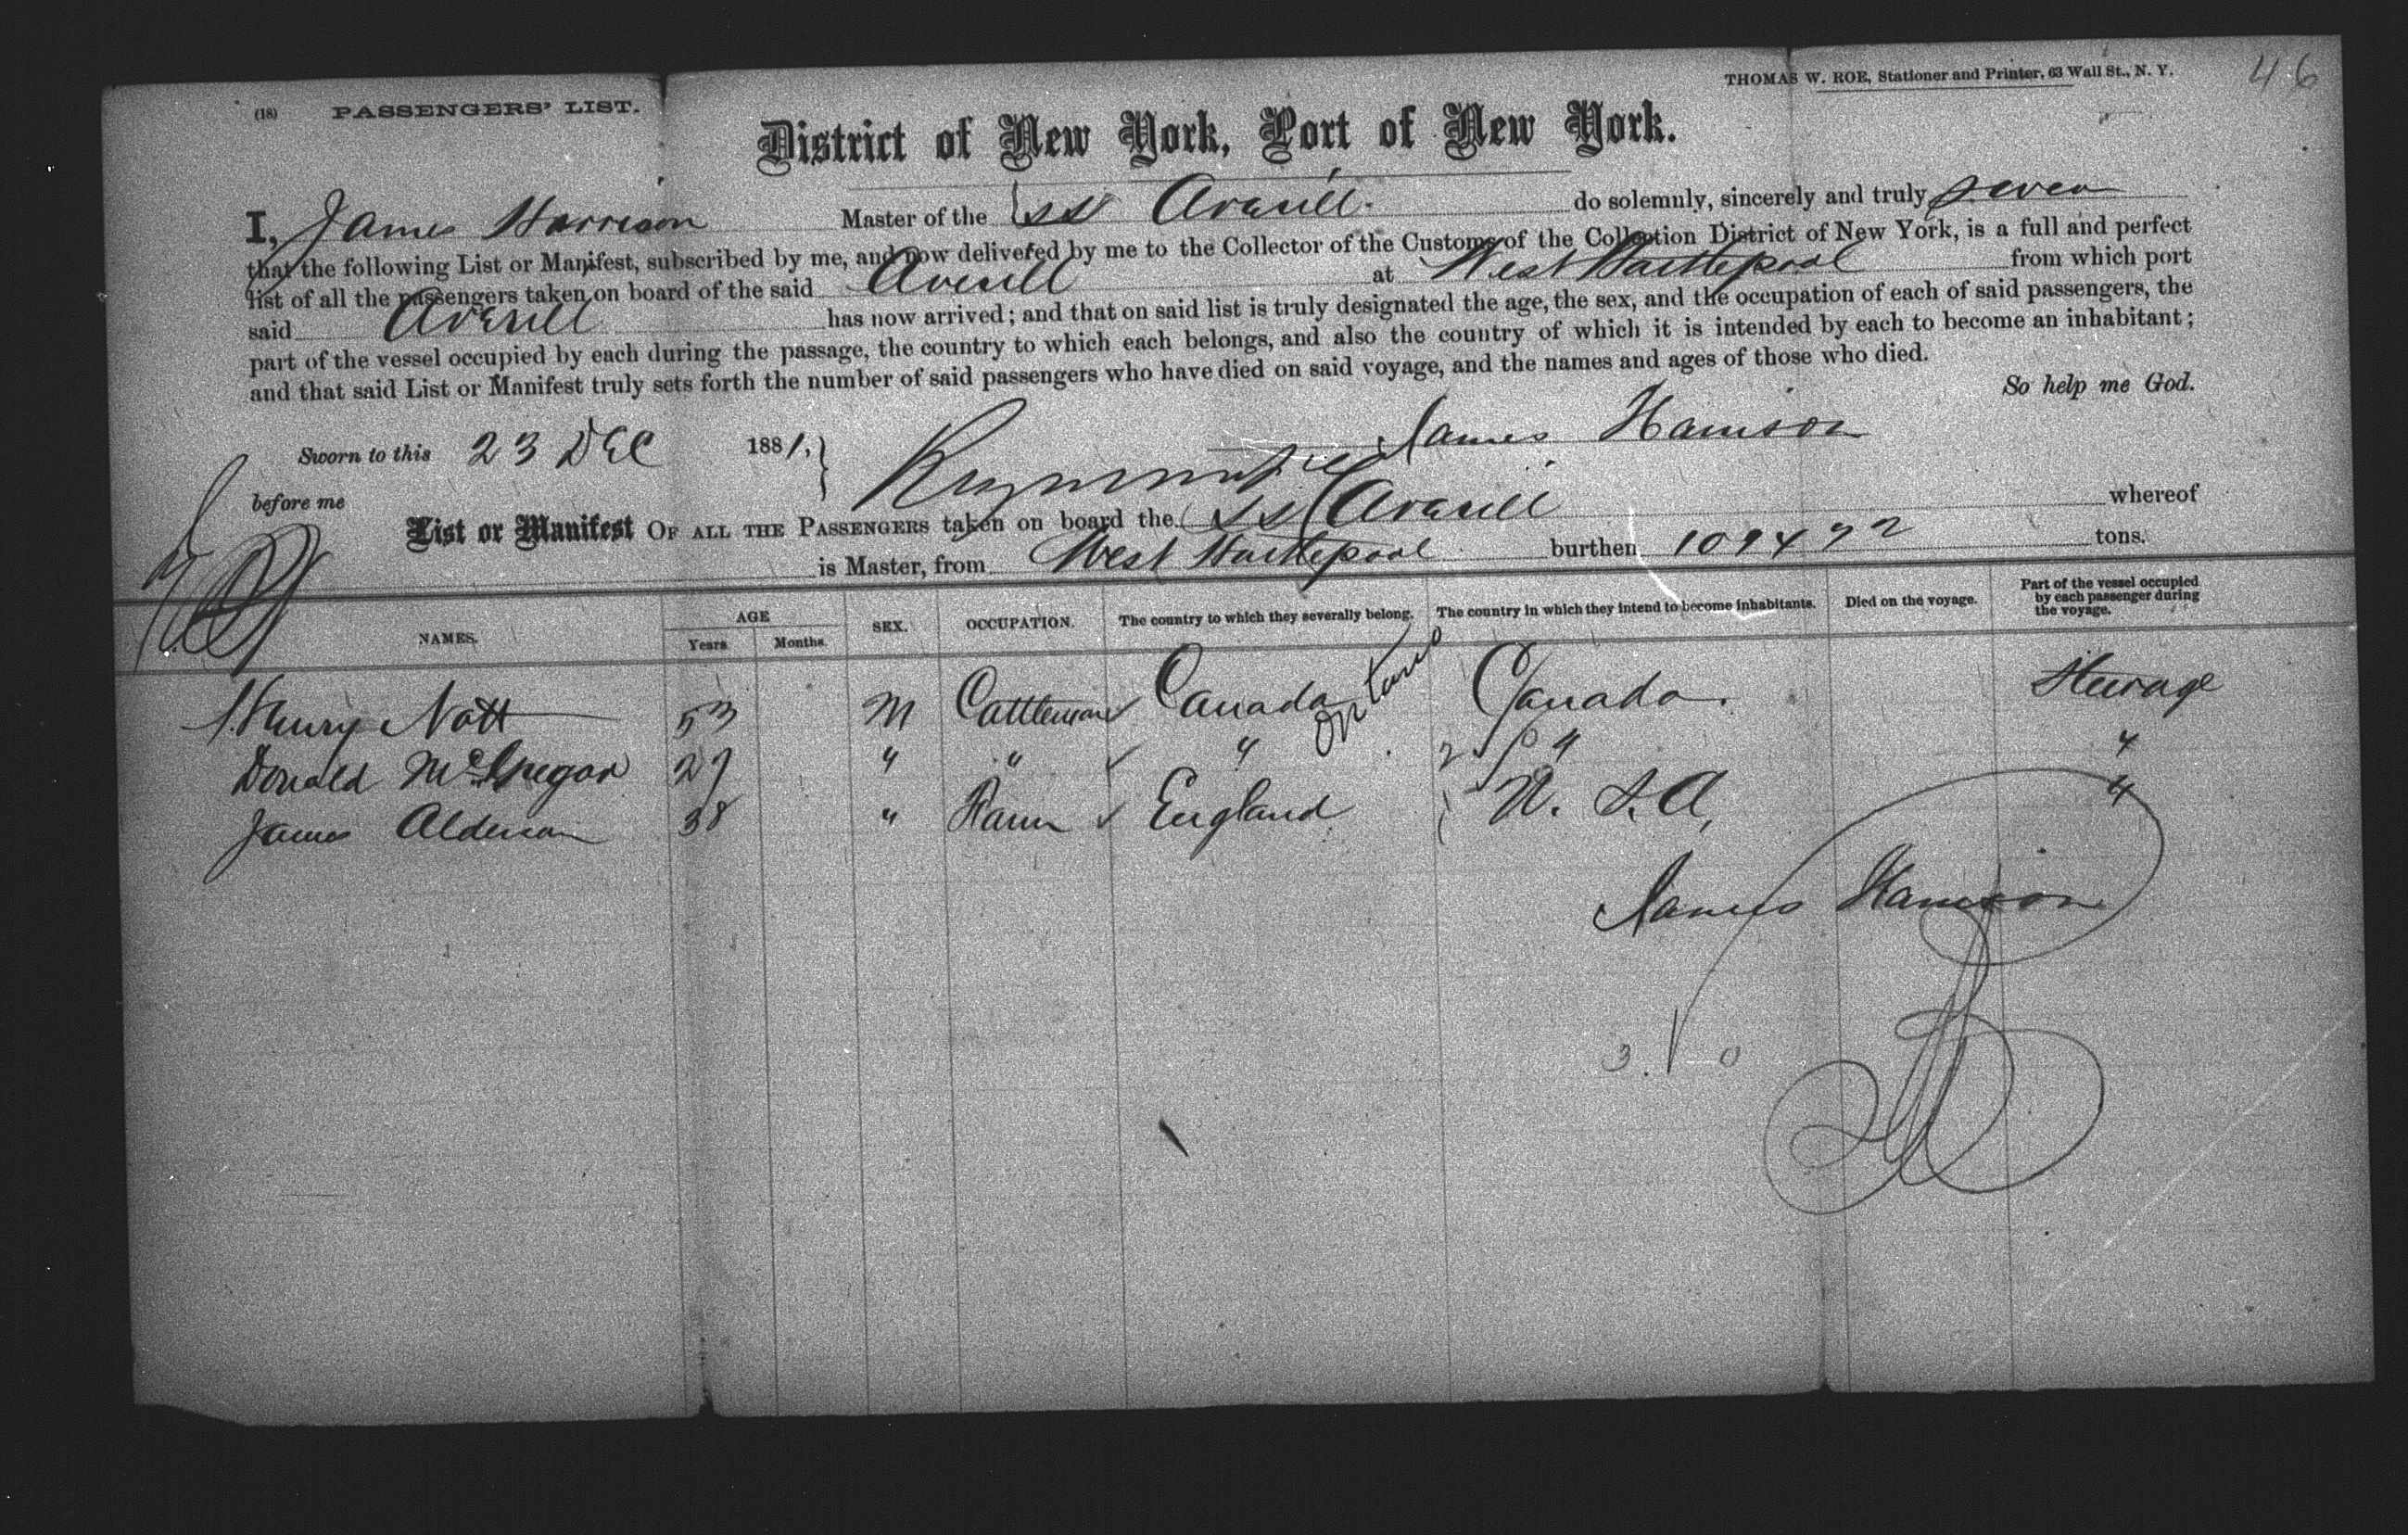 46
THOMAS W. ROE, Stationer and Printer, 63 Wall St., N. Y.
(18) PASSENGERS' LIST.
District of New York, Port of New York.
I, James Harrison Master of the SS Averill. do solemnly, sincerely and truly swear
that the following List or Manifest, subscribed by me, and now delivered by me to the Collector of the Customs of the Collection District of New York, is a full and perfect
list of all the passengers taken on board of the said Averill at West Hartlepool from which port
said Averill has now arrived; and that on said list is truly designated the age, the sex, and the occupation of each of said passengers, the
part of the vessel occupied by each during the passage, the country to which each belongs, and also the country of which it is intended by each to become an inhabitant;
and that said List or Manifest truly sets forth the number of said passengers who have died on said voyage, and the names and ages of those who died.
So help me God.
Sworn to this 23 DEC 1881, James Harrison
before me
List or Manifest OF ALL THE PASSENGERS taken on board the SS Averill whereof
is Master, from West Hartlepool burthen tons.
NAMES. AGE Years Months. SEX. OCCUPATION. The country to which they severally belong. The country in which they intend to become inhabitants. Died on the voyage. Part of the vessel occupied by each passenger during the voyage.
Henry Nott 53 M Cattleman Canada Ontario Canada. Steerage
Donald McGregor 27 " " " " "
James Alderson 38 " Farm England U.S.A. "
James Harrison
3. 0